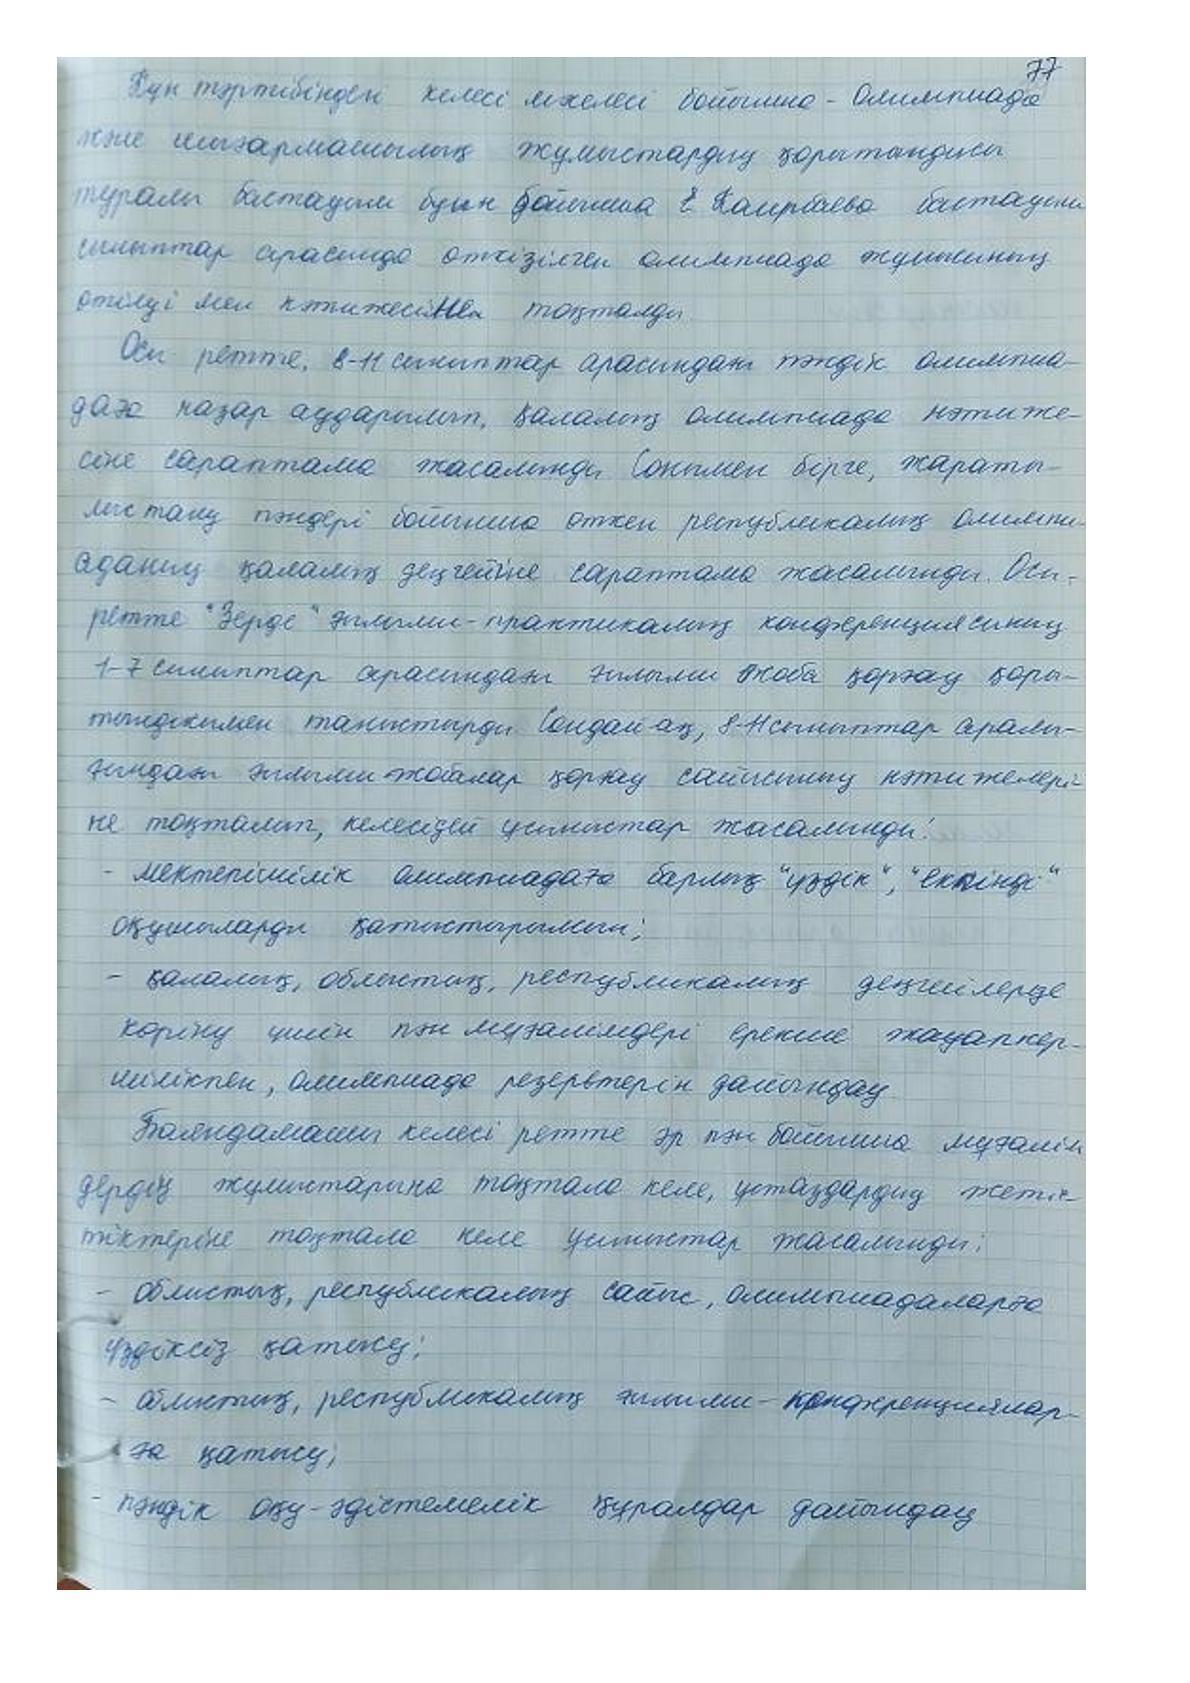 77
Күн тәртібіндегі келесі мәселесі бойынша - Олимпиада
және шығармашылық жұмыстардың қорытындысы
туралы бастауыш буын бойынша Е Каирбаева бастауыш
сыныптар арасында өткізілген олимпиада жұмысының
өтілуі мен нәтижесімен тоқталды.
Осы ретте, 8-11 сыныптар арасындағы пәндік олимпиа-
даға назар аударылып, қалалық олимпиада нәтиже-
сіне сараптама жасалынды. Сонымен бірге, жараты-
лыстану пәндері бойынша өткен республикалық олимпи-
аданың қалалық деңгейіне сараптама жасалынды. Осы-
ретте "Зерде" ғылыми-практикалық конференциясының
1-7 сыныптар арасындағы ғылыми жоба қорғау қоры-
тындысымен таныстырды. Сондай-ақ, 8-11 сыныптар аралы-
ғындағы ғылыми жобалар қорғау сайысының нәтижелері-
не тоқталып, келесідей ұсыныстар жасалынды:
- мектепішілік олимпиадаға барлық "үздік", "екпінді"
оқушыларды қатыстырылсын;
- қалалық, облыстық, республикалық деңгейлерде
көріну үшін пән мұғалімдері ерекше жауапкер-
шілікпен, олимпиада резервтерін дайындау
Баяндамашы келесі ретте әр пән бойынша мұғалім
дердің жұмыстарына тоқтала келе, ұстаздардың жетіс-
тіктеріне тоқтала келе ұсыныстар жасалынды:
- облыстық, республикалық сайыс, олимпиадаларға
үздіксіз қатысу;
- облыстық, республикалық ғылыми-конференциялар-
ға қатысу;
- пәндік оқу-әдістемелік құралдар дайындау